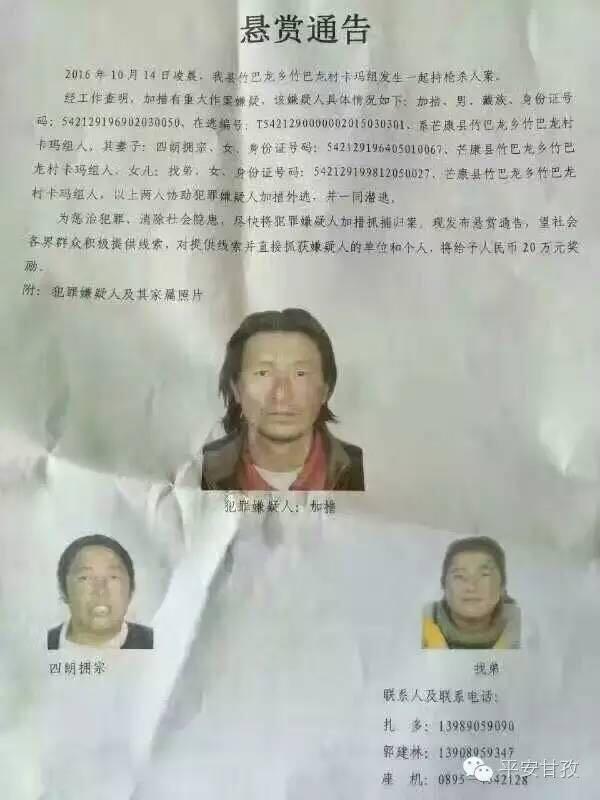 悬赏通告
2016 年 10 月 14 日凌晨，我县竹巴龙乡竹巴龙村卡玛组发生一起持枪杀人案。
经工作查明，加措有重大作案嫌疑，该嫌疑人具体情况如下：加措、男、藏族、身份证号
码：542129196902030050、在逃编号：T5421290000002015030301、系芒康县竹巴龙乡竹巴龙村
卡玛组人，其妻子：四朗拥宗、女、身份证号码：542129196405010067、芒康县竹巴龙乡竹巴
龙村卡玛组人，女儿：找弟、女、身份证号码：542129199812050027；芒康县竹巴龙乡竹巴龙
村卡玛组人，以上两人协助犯罪嫌疑人加措外逃，并一同潜逃。
为惩治犯罪、消除社会隐患，尽快将犯罪嫌疑人加措抓捕归案。现发布悬赏通告，望社会
各界群众积极提供线索，对提供线索并直接抓获嫌疑人的单位和个人，将给予人民币 20 万元奖
励。
附：犯罪嫌疑人及其家属照片
犯罪嫌疑人：加措
四朗拥宗
找弟
联系人及联系电话：
扎 多：13989059090
郭建林：13908959347
座 机：0895-4542128
平安甘孜